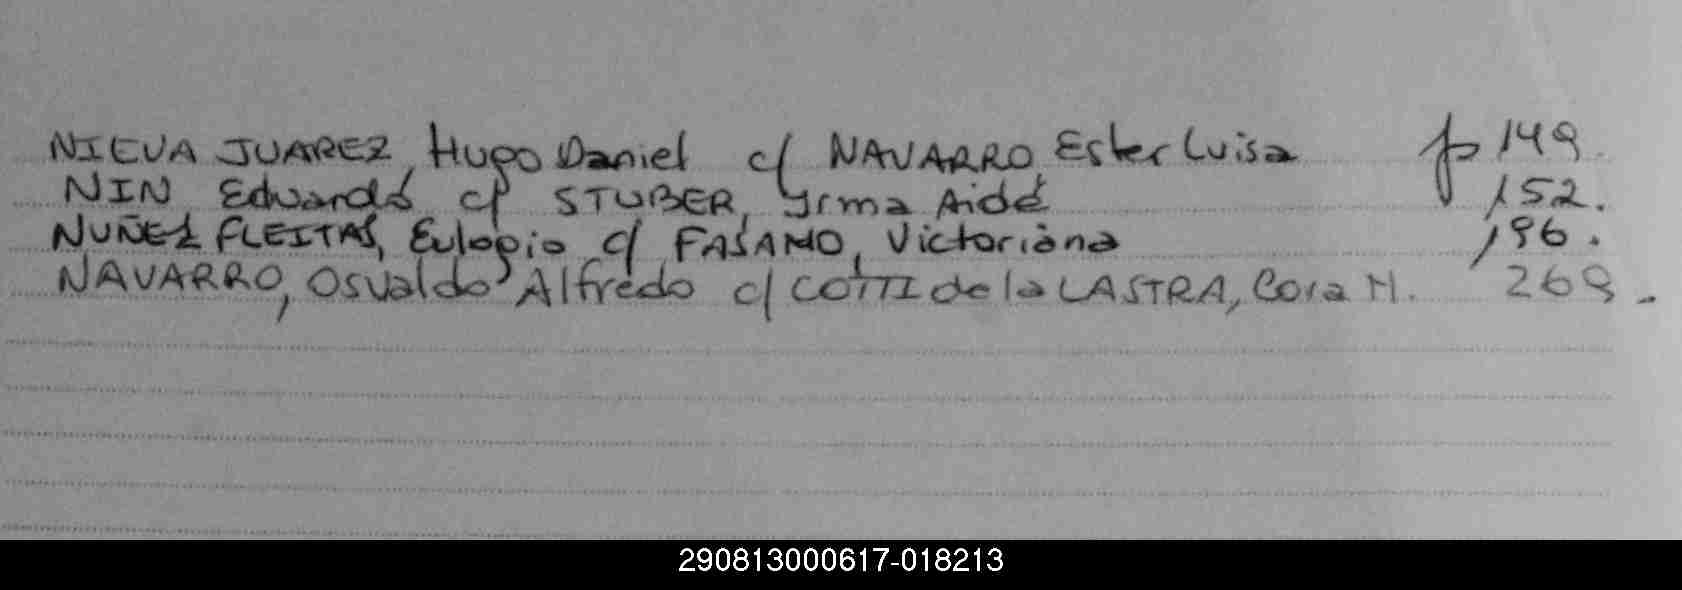 NIEVA JUAREZ, Hugo Daniel c/ NAVARRO, Ester Luisa fo 149.
NIN Eduardo c/ STUBER, Yrma Aidé 152.
NUÑEZ FLEITAS, Eulogio c/ FASANO, Victoriana 196.
NAVARRO, Osvaldo Alfredo c/ COTTI de la LASTRA, Cora M. 269.
290813000617-018213